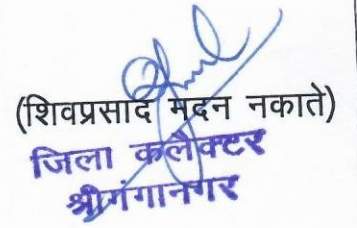 (शिवप्रसाद मदन नकाते)
जिला कलेक्टर
श्रीगंगानगर